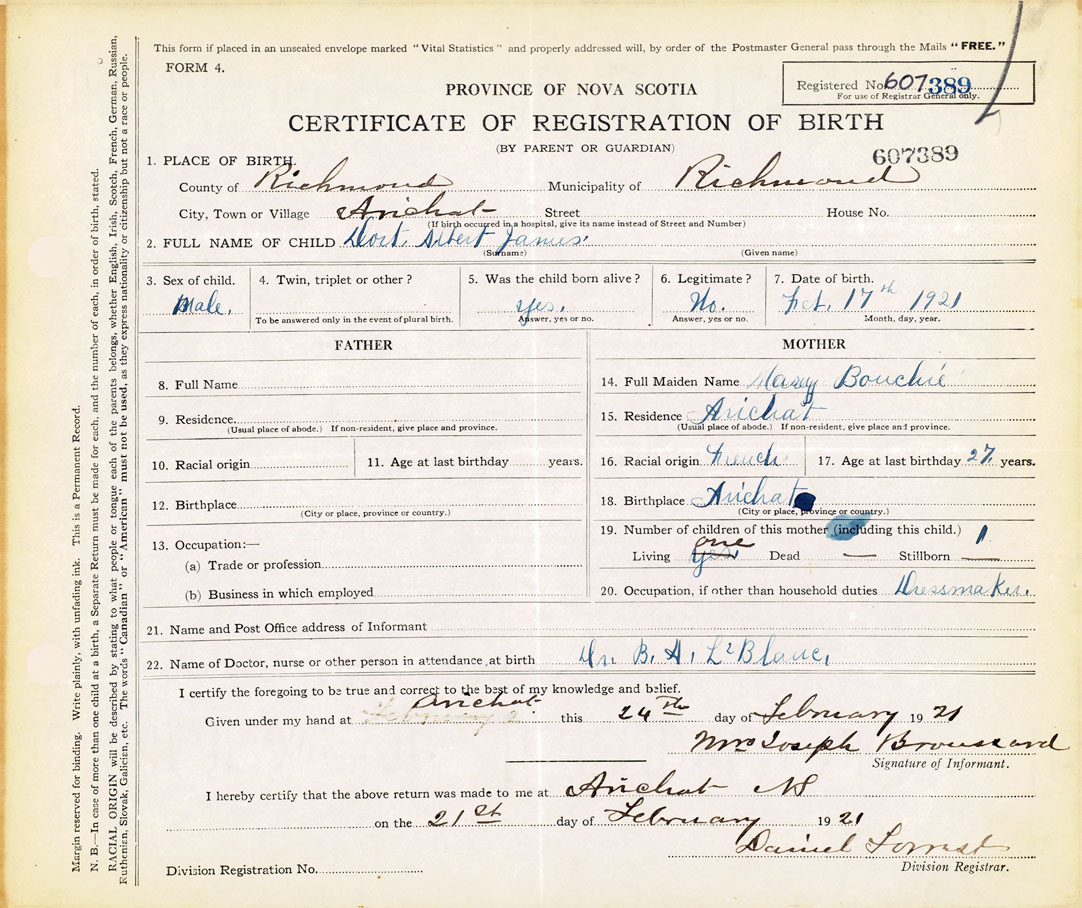 This form if placed in an unsealed envelope marked "Vital Statistics" and properly addressed will, by order of the Postmaster General pass through the Mails "FREE."
FORM 4.
Registered No. 607389
For use of Registrar General only.
PROVINCE OF NOVA SCOTIA
CERTIFICATE OF REGISTRATION OF BIRTH
(BY PARENT OR GUARDIAN)
607389
1. PLACE OF BIRTH.
County of Richmond Municipality of Richmond
City, Town or Village Arichat Street House No.
(If birth occurred in a hospital, give its name instead of Street and Number)
2. FULL NAME OF CHILD Albert James
(Surname) (Given name)
3. Sex of child. 4. Twin, triplet or other? 5. Was the child born alive? 6. Legitimate? 7. Date of birth.
Male. yes. No. Feb. 17th 1921
To be answered only in the event of plural birth. Answer, yes or no. Answer, yes or no. Month, day, year.
FATHER
8. Full Name
9. Residence.
(Usual place of abode.) If non-resident, give place and province.
10. Racial origin 11. Age at last birthday years.
12. Birthplace
(City or place, province or country.)
13. Occupation:—
(a) Trade or profession
(b) Business in which employed
MOTHER
14. Full Maiden Name Bouchie
15. Residence Arichat
(Usual place of abode.) If non-resident, give place and province.
16. Racial origin French 17. Age at last birthday 27 years.
18. Birthplace Arichat
(City or place, province or country.)
19. Number of children of this mother (including this child.) 1
one
Living yes. Dead — Stillborn —
20. Occupation, if other than household duties Dressmaker.
21. Name and Post Office address of Informant
22. Name of Doctor, nurse or other person in attendance at birth Dr. B. A. LeBlanc.
I certify the foregoing to be true and correct to the best of my knowledge and belief.
Given under my hand at Arichat this 24th day of February 1921
Mrs Joseph Broussard
Signature of Informant.
I hereby certify that the above return was made to me at Arichat NS
on the 21st day of February 1921
Daniel Forrest
Division Registrar.
Division Registration No.
Margin reserved for binding. Write plainly, with unfading ink. This is a Permanent Record.
N. B.—In case of more than one child at a birth, a Separate Return must be made for each, and the number of each, in order of birth, stated.
RACIAL ORIGIN will be described by stating to what people or tongue each of the parents belongs, whether English, Irish, Scotch, French, German, Russian,
Ruthenian, Slovak, Galician, etc. The words "Canadian" or "American" must not be used, as they express nationality or citizenship but not a race or people.